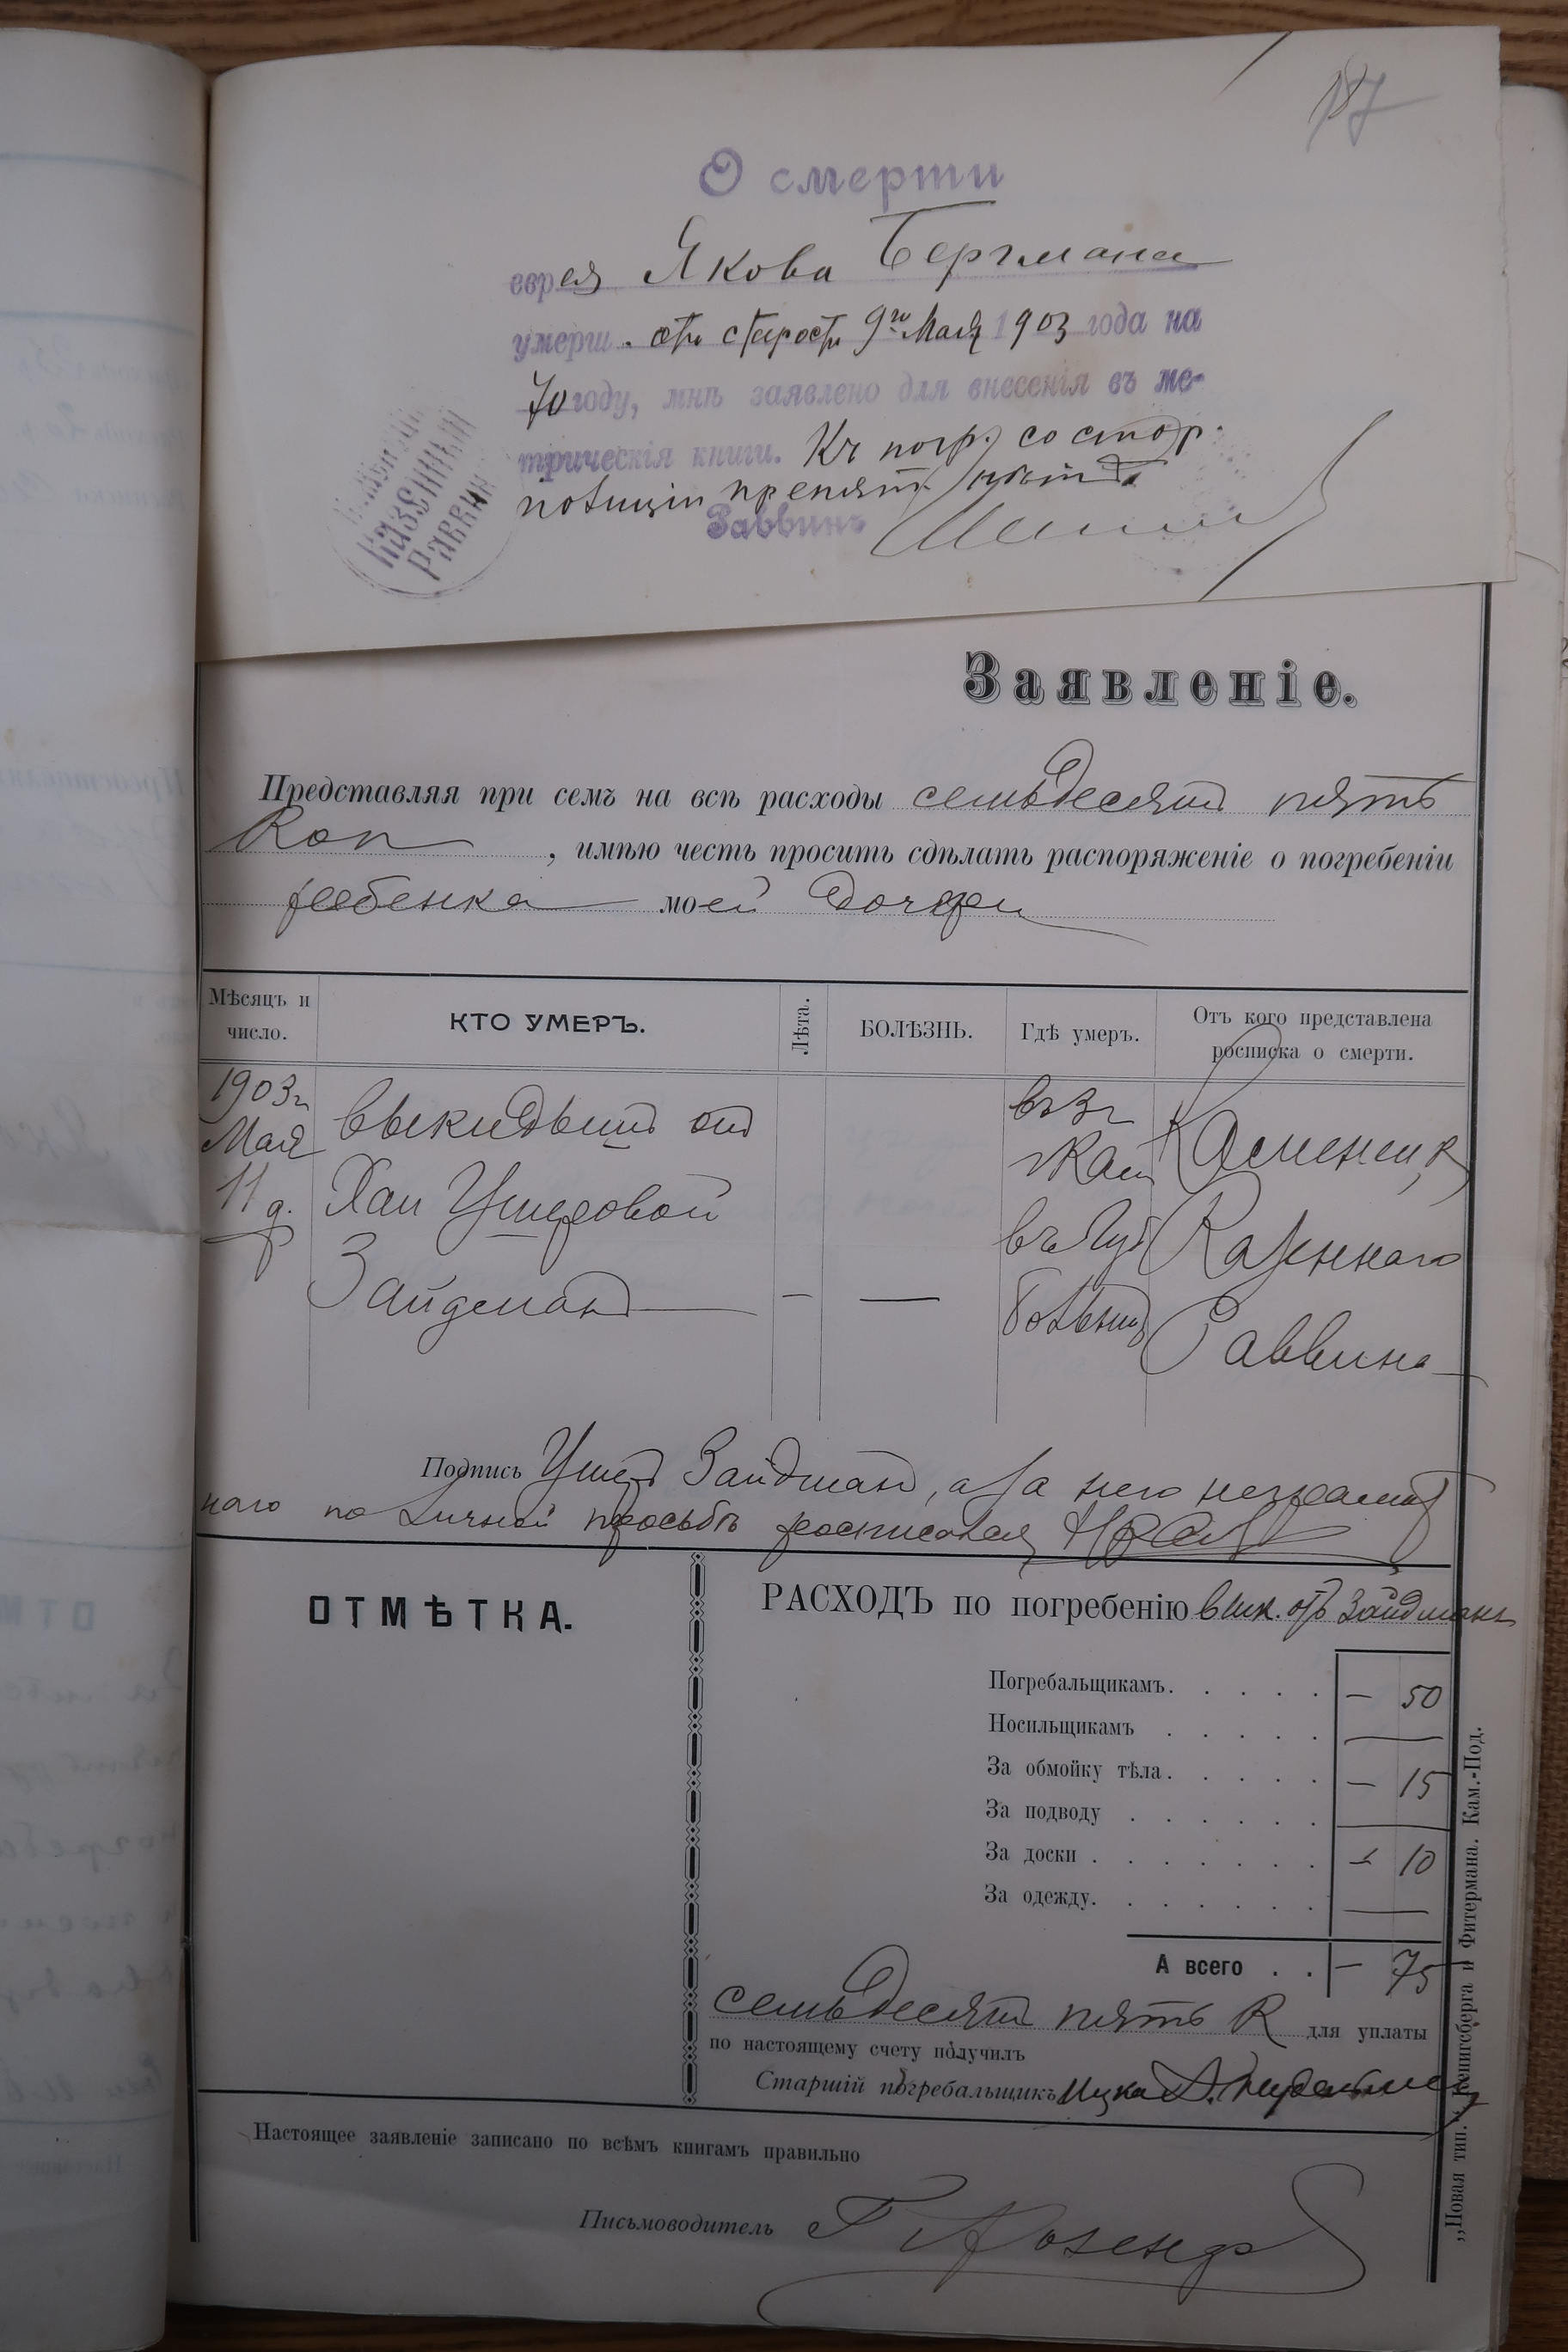 О смерти
еврея Якова Бергмана
умерш. отъ старости 9го Мая 1903 года на
70 году, мнѣ заявлено для внесенія въ ме-
трическія книги. Къ погр. со стор.
полиціи препят. нѣтъ
Раввинъ
Казенный
Раввин
Заявленіе.
Представляя при семъ на всѣ расходы семьдесятъ пять
Коп , имѣю честь просить сдѣлать распоряженіе о погребеніи
ребенка моей дочери
Мѣсяцъ и число. КТО УМЕРЪ. Лѣта. БОЛѢЗНЬ. Гдѣ умеръ. Отъ кого представлена росписка о смерти.
1903г выкидышъ отъ Каменецк
Мая Хаи Ушеровой въ Губ Казеннаго
11 д. Зайдманъ — — Больниц Раввина
Подпись Ушеръ Зайдманъ, а за него неграмот
наго по личной просьбѣ росписался
ОТМѢТКА.
РАСХОДЪ по погребенію вык. отъ Зайдманъ
Погребальщикамъ. — 50
Носильщикамъ —
За обмойку тѣла. — 15
За подводу —
За доски . — 10
За одежду. —
А всего . . — 75
семьдесятъ пять К для уплаты
по настоящему счету получилъ
Старшій погребальщикъ Ицко
Настоящее заявленіе записано по всѣмъ книгамъ правильно
Письмоводитель
„Новая тип." Кенигсберга и Фитермана. Кам.-Под.